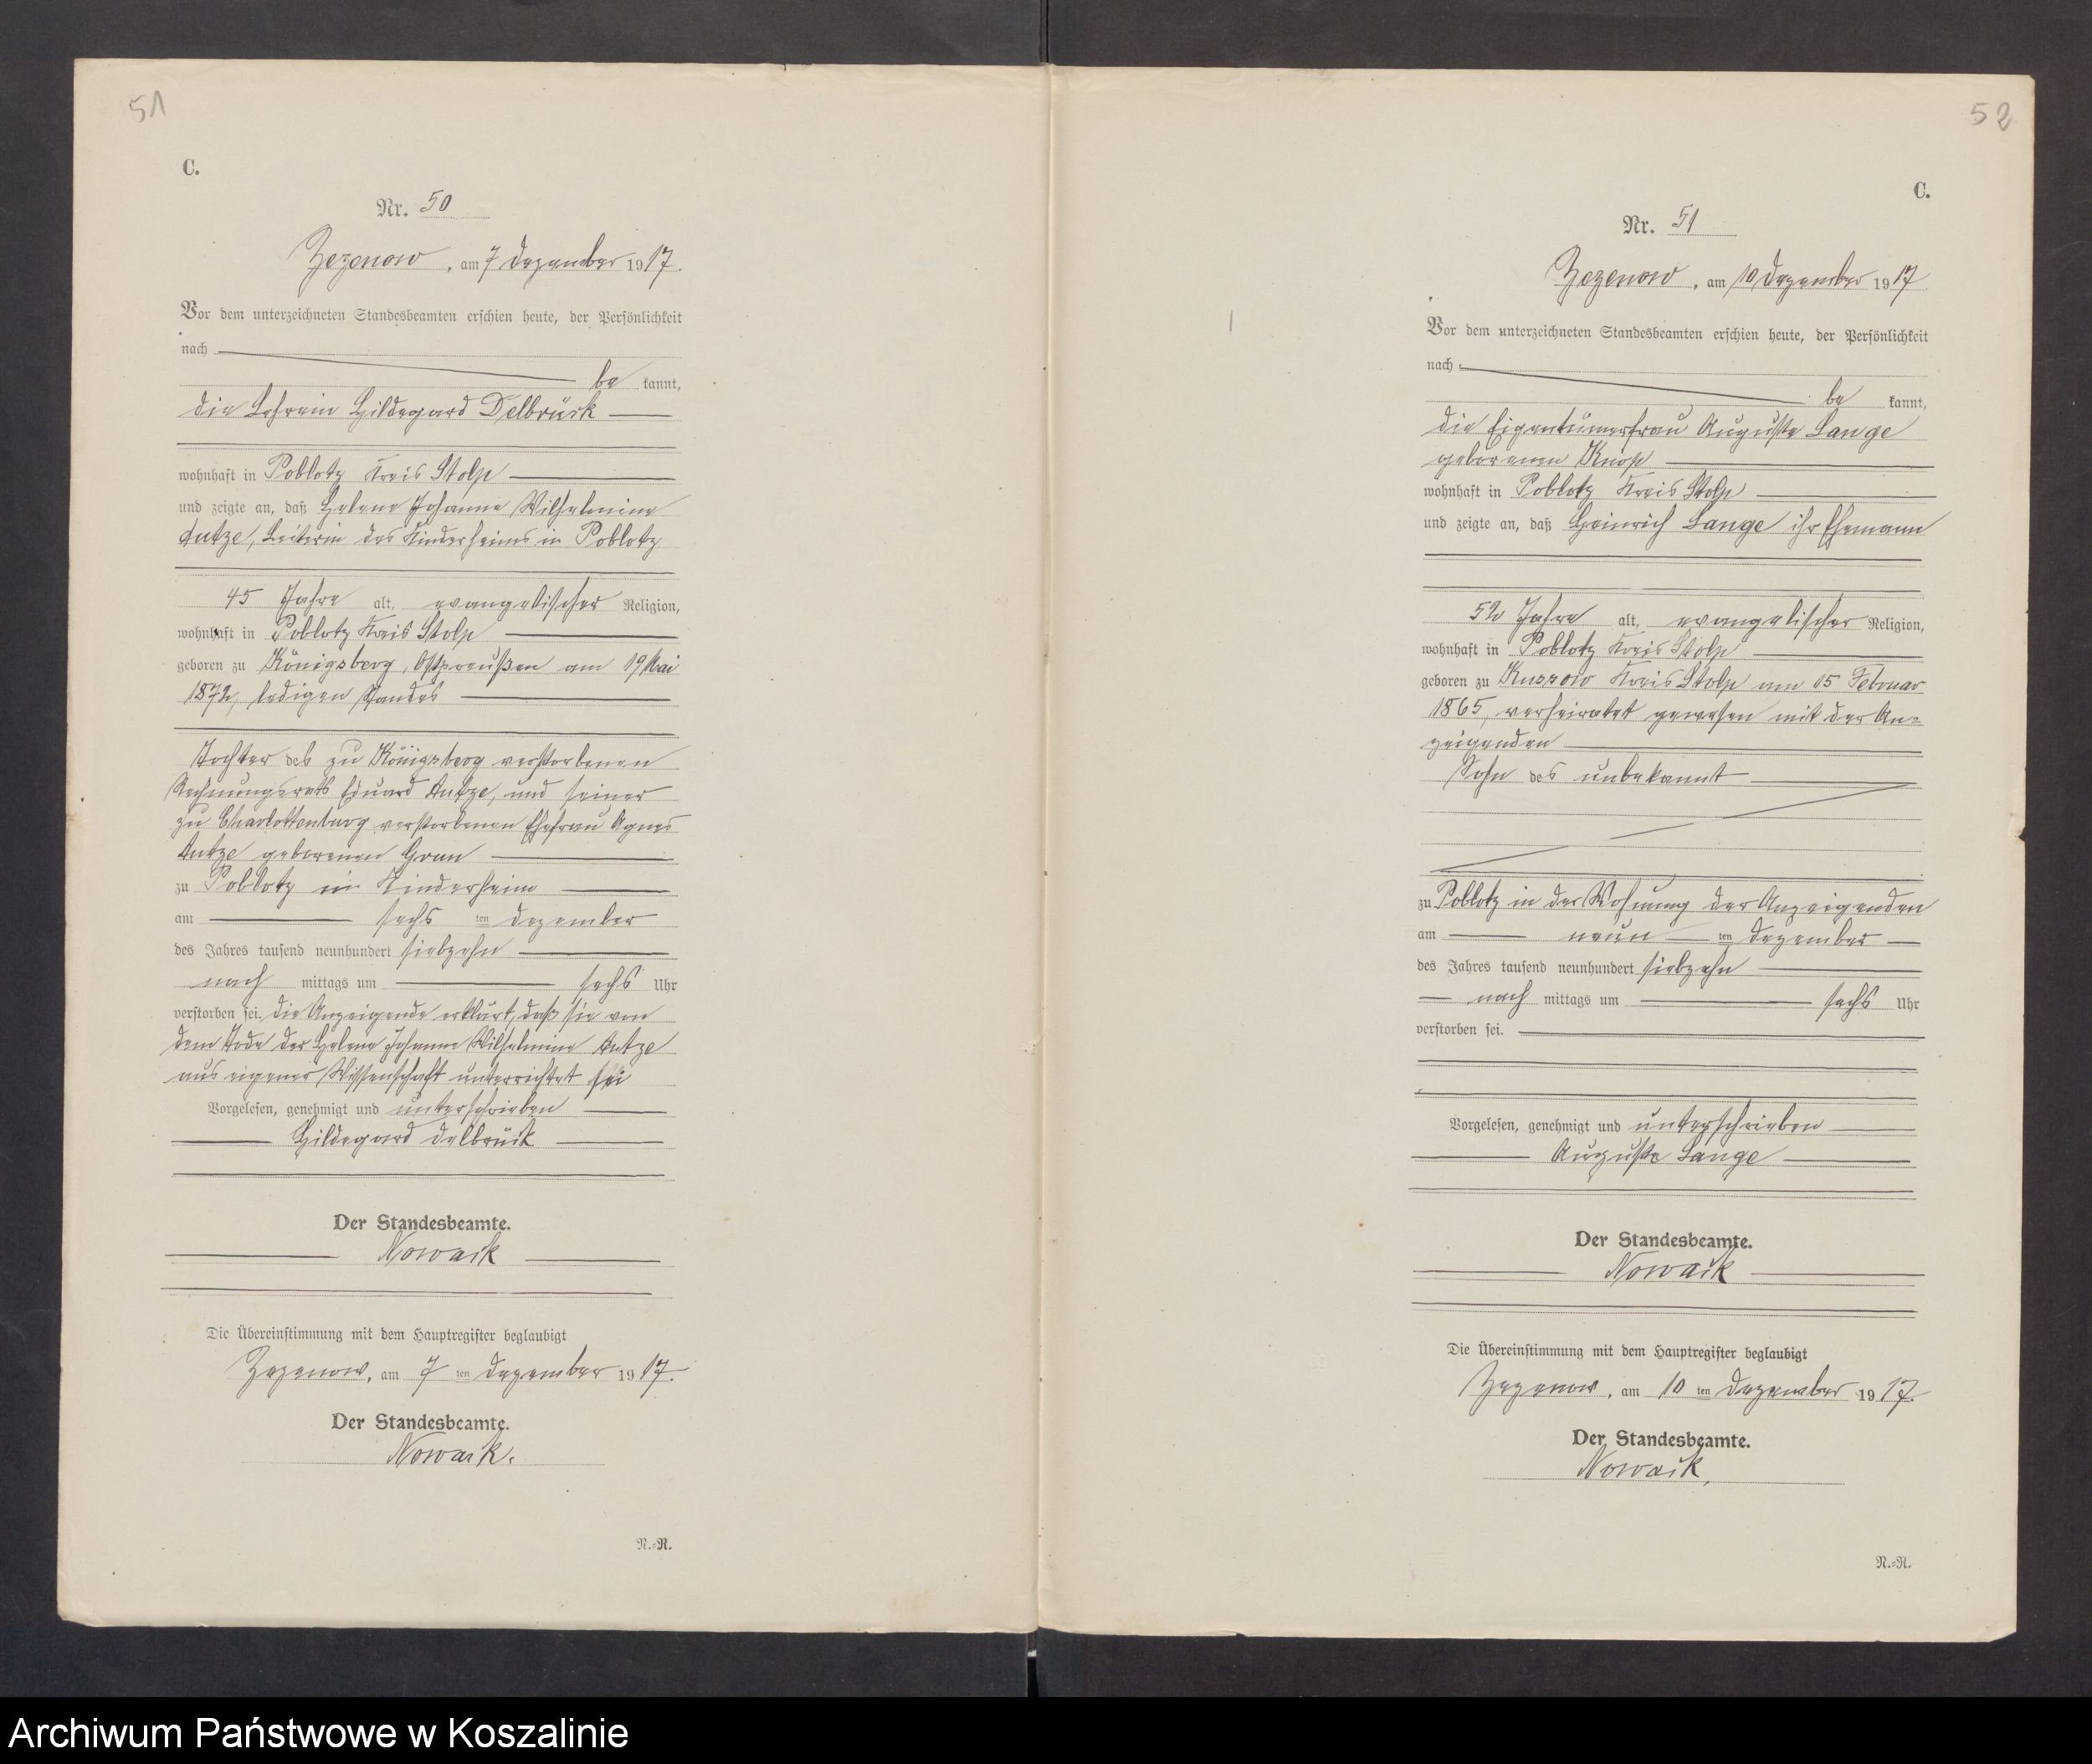 51
C.
Nr. 50
Zezenow, am 7 Dezember 1917.
Vor dem unterzeichneten Standesbeamten erschien heute, der Persönlichkeit
nach
be kannt,
die Lehrerin Hildegard Delbrück
wohnhaft in Poblotz Kreis Stolp
und zeigte an, daß Helene Johanne Wilhelmine
Autze, Leiterin des Kinderheims in Poblotz
45 Jahre alt, evangelischer Religion,
wohnhaft in Poblotz Kreis Stolp
geboren zu Königsberg, Ostpreußen am 19 Mai
1872, ledigen Standes
Tochter des zu Königsberg verstorbenen
Rechnungsrats Eduard Autze, und seiner
zu Charlottenburg verstorbenen Ehefrau Agnes
Autze geborenen
zu Poblotz im Kinderheim
am sechs ten Dezember
des Jahres tausend neunhundert siebzehn
nach mittags um sechs Uhr
verstorben sei. Die Anzeigende erklärt, daß sie von
dem Tode der Helene Johanne Wilhelmine Autze
aus eigener Wissenschaft unterrichtet sei
Vorgelesen, genehmigt und unterschrieben
Hildegard Delbrück
Der Standesbeamte.
Nowack
Die Übereinstimmung mit dem Hauptregister beglaubigt
Zezenow, am 7 ten Dezember 1917.
Der Standesbeamte.
Nowack.
N.=R.
52
C.
Nr. 51
Zezenow, am 10 Dezember 1917
Vor dem unterzeichneten Standesbeamten erschien heute, der Persönlichkeit
nach
be kannt,
die Eigentümerfrau Auguste Lange
geborenen Knop
wohnhaft in Poblotz Kreis Stolp
und zeigte an, daß Heinrich Lange ihr Ehemann
52 Jahre alt, evangelischer Religion,
wohnhaft in Poblotz Kreis Stolp
geboren zu Kussow Kreis Stolp am 15 Februar
1865, verheiratet gewesen mit der An=
zeigenden
Sohn des unbekannt
zu Poblotz in der Wohnung der Anzeigenden
am neun ten Dezember
des Jahres tausend neunhundert siebzehn
nach mittags um sechs Uhr
verstorben sei.
Vorgelesen, genehmigt und unterschrieben
Auguste Lange
Der Standesbeamte.
Nowack
Die Übereinstimmung mit dem Hauptregister beglaubigt
Zezenow, am 10 ten Dezember 1917.
Der Standesbeamte.
Nowack.
N.=R.
Archiwum Państwowe w Koszalinie